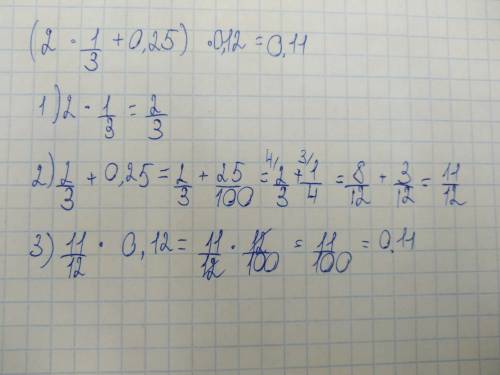 (2 · 1/3 + 0,25) · 0,12 = 0,11
1) 2 · 1/3 = 2/3
2) 2/3 + 0,25 = 2/3 + 25/100 = 4/ 2/3 + 3/ 1/4 = 8/12 + 3/12 = 11/12
3) 11/12 · 0,12 = 11/12 · 12/100 = 11/100 = 0,11